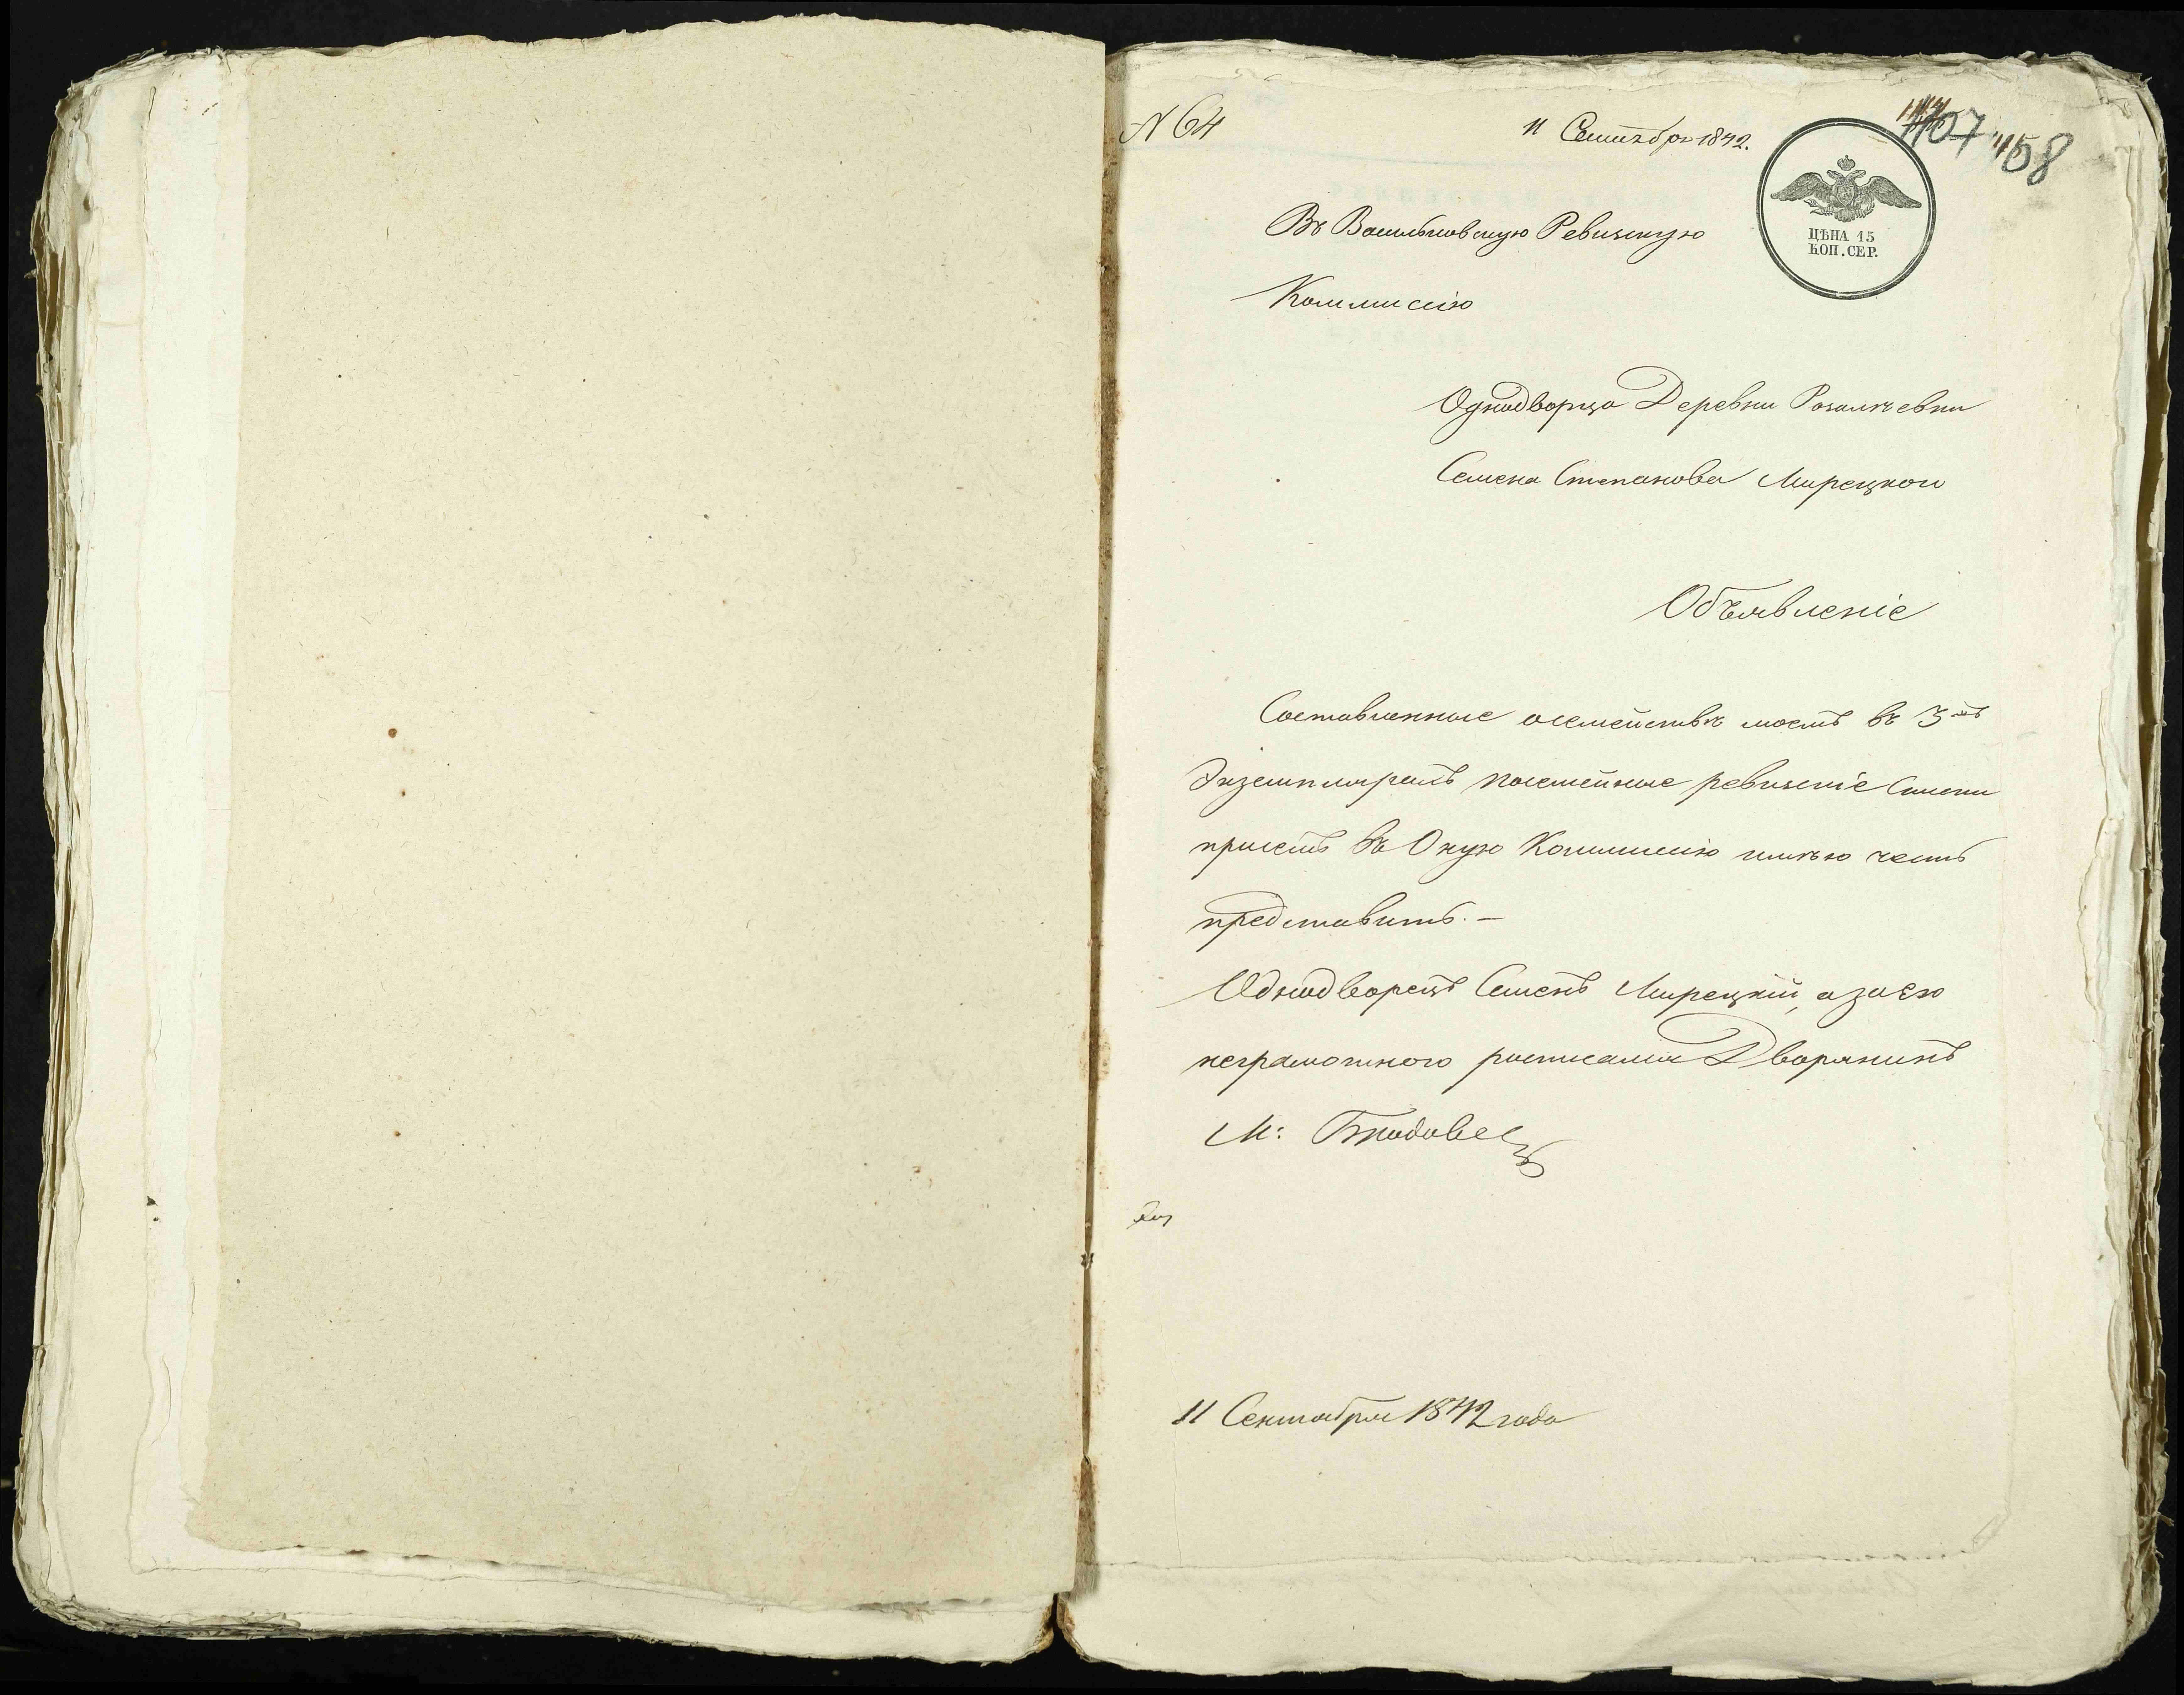 N 64
11 Сентября 1842.
107 158
ЦѢНА 15
КОП. СЕР.
Въ Васильковскую Ревизскую
Коммисію
Однодворца Деревни
Семена Степанова Мирецкого
Объявленіе
Составленные осемействѣ моемъ въ 3хъ
Экземплярахъ посемейные ревизскіе
присемъ въ Оную Коммисію имѣю честь
представить. —
Однодворецъ Семенъ Мирецкій, а за его
неграмотного росписался Дворянинъ
М:
11 Сентября 1842 года